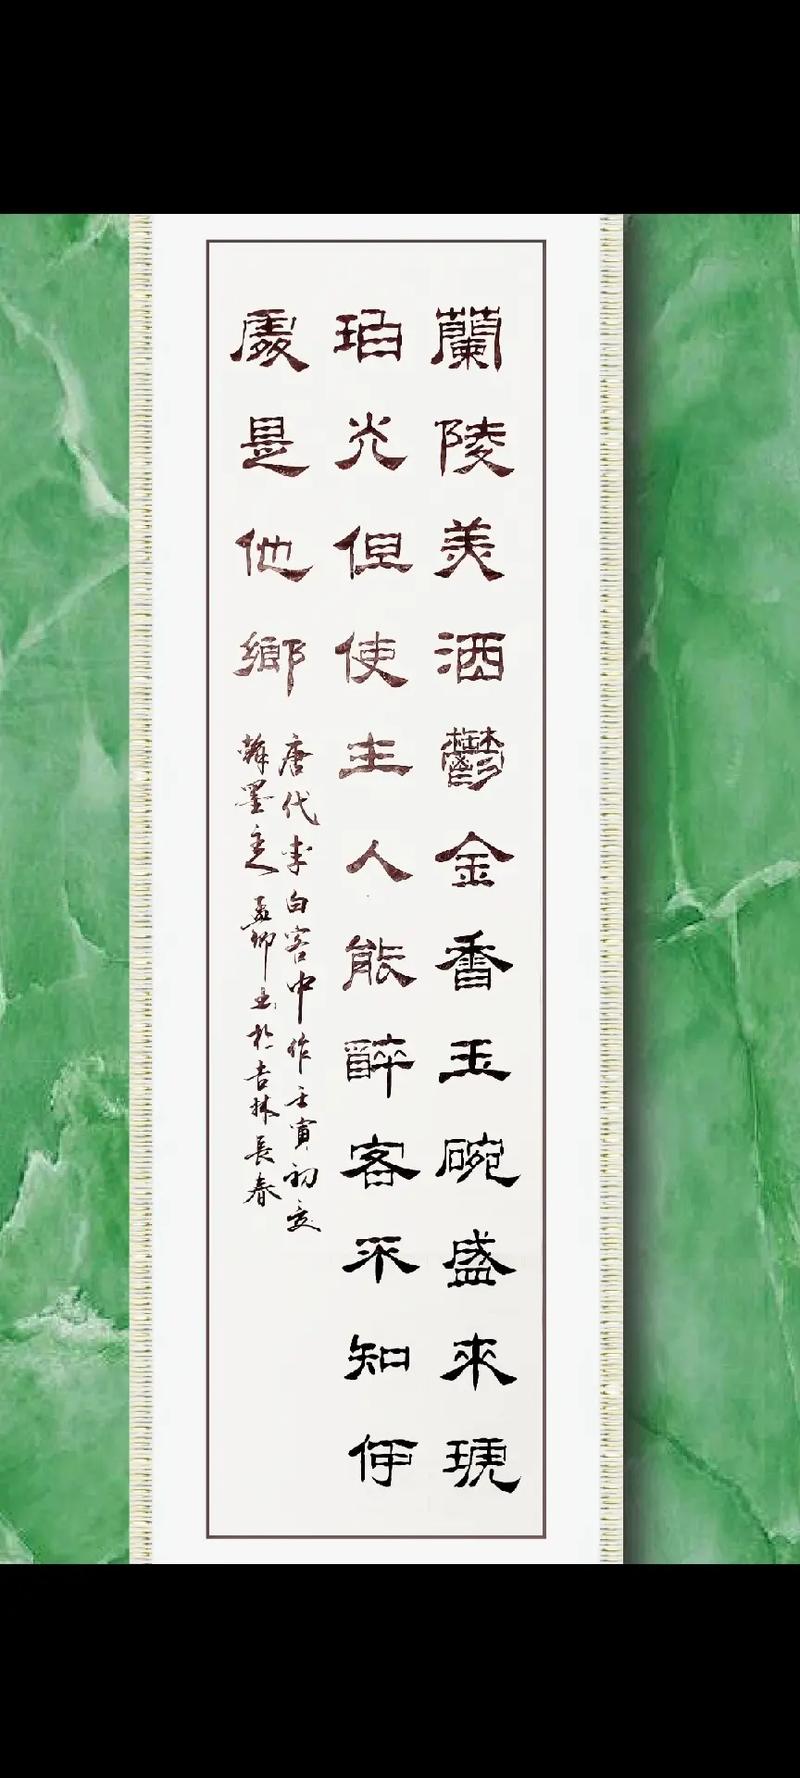 蘭陵美酒鬱金香玉碗盛來琥
珀光但使主人能醉客不知何
處是他鄉
唐代李白客中作壬寅初夏
墨孟卿书於吉林長春